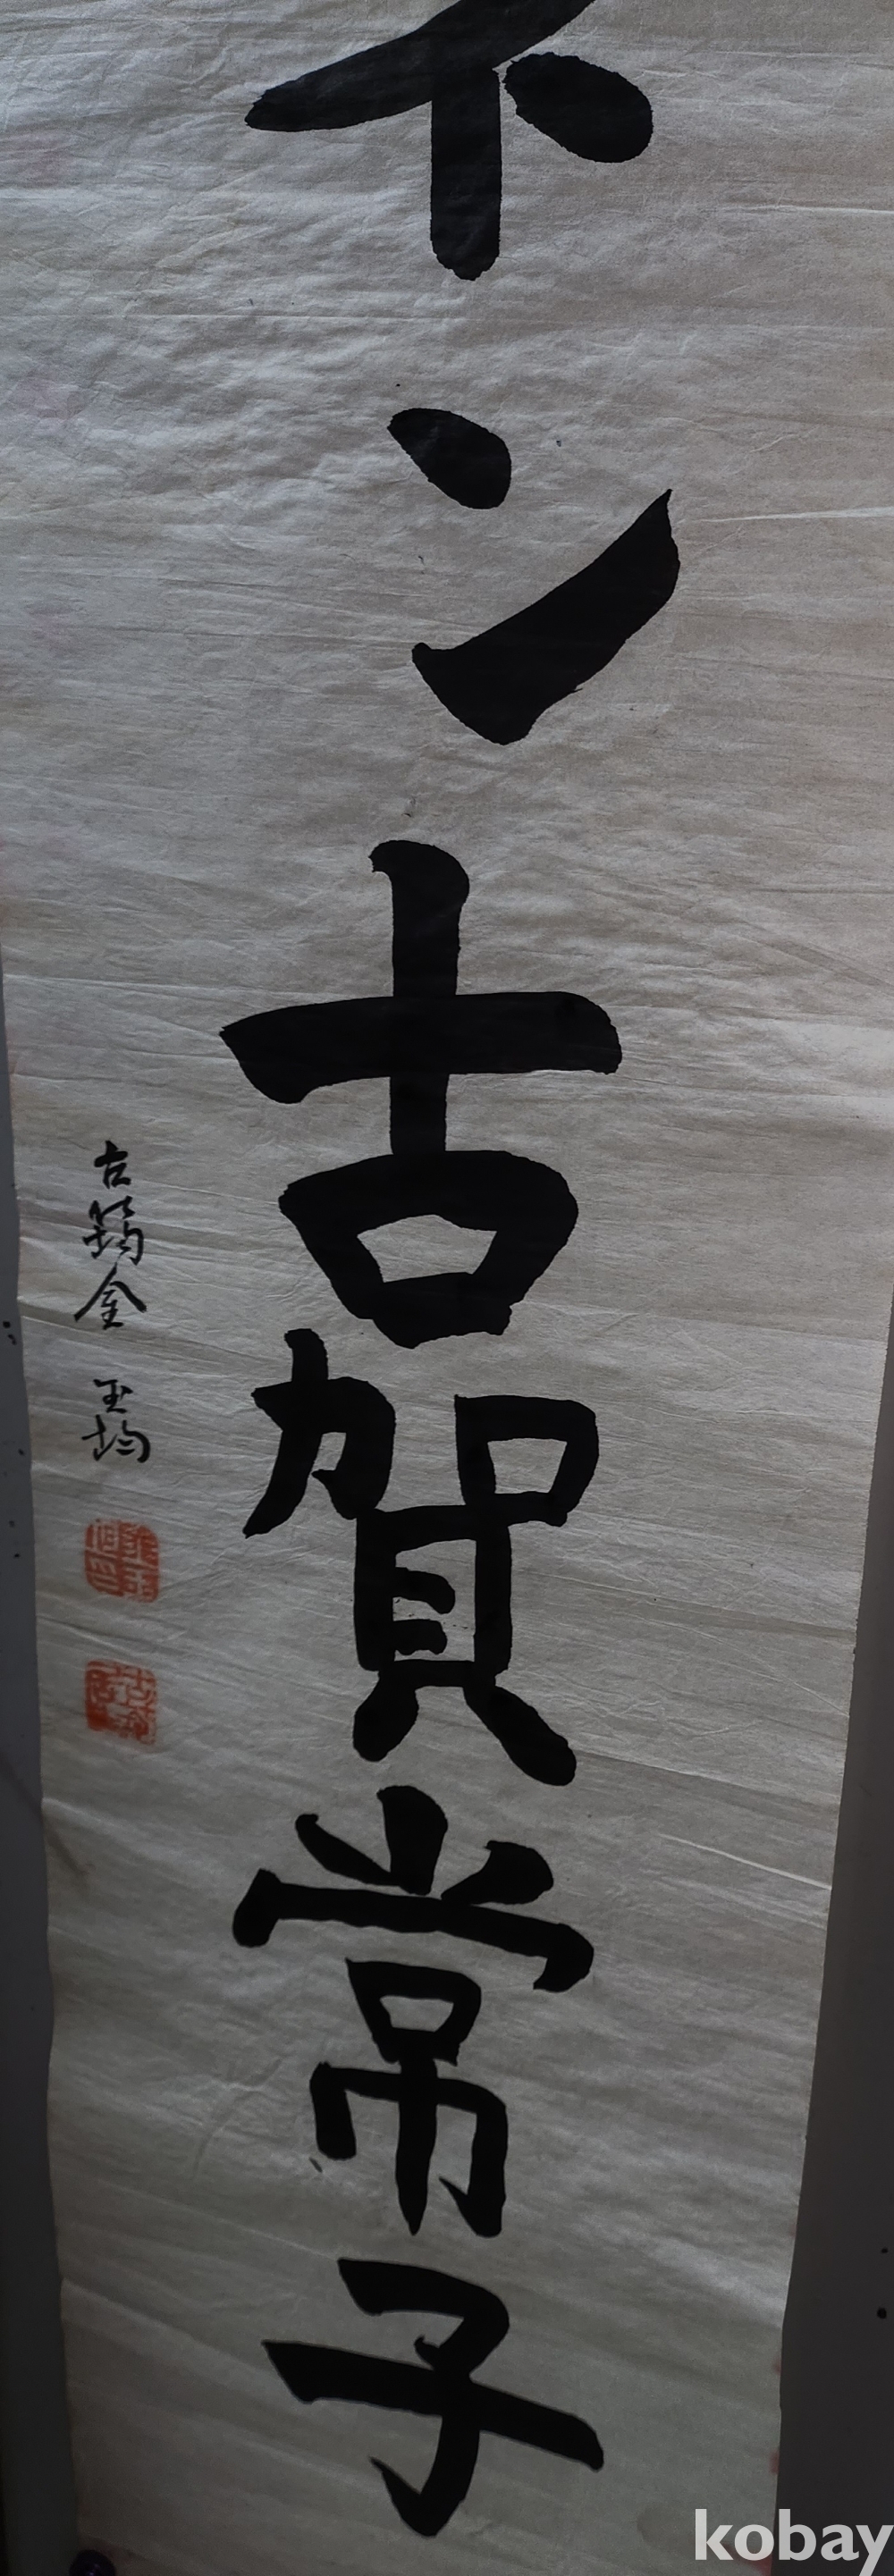 ン古賀常子
古筠金 玉均
kobay